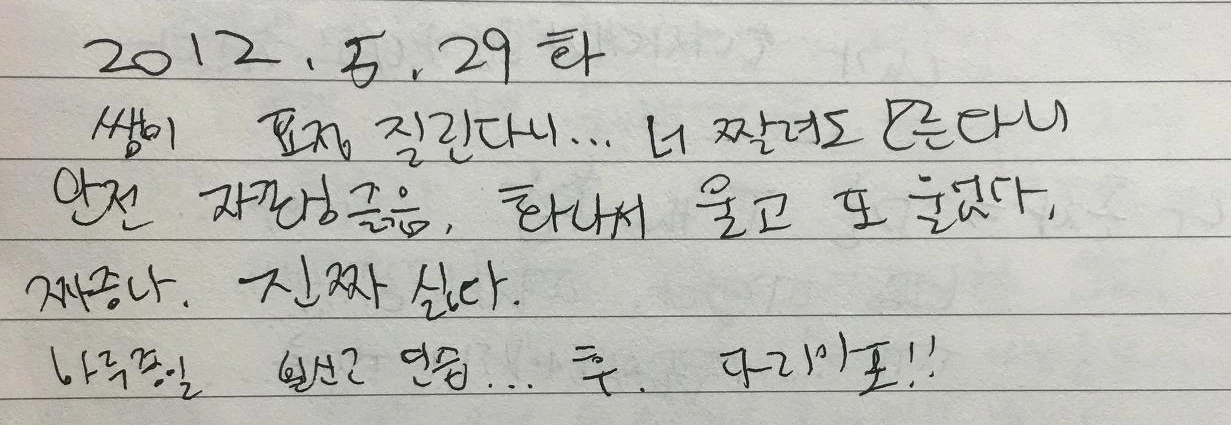 2012. 5. 29 화
쌤이 표정 질린다니... 너 짤려도 모른다니
완전 자존심. 화나서 울고 또 울었다.
짜증나. 진짜 싫다.
하루종일 연습... 후. 다리아포!!